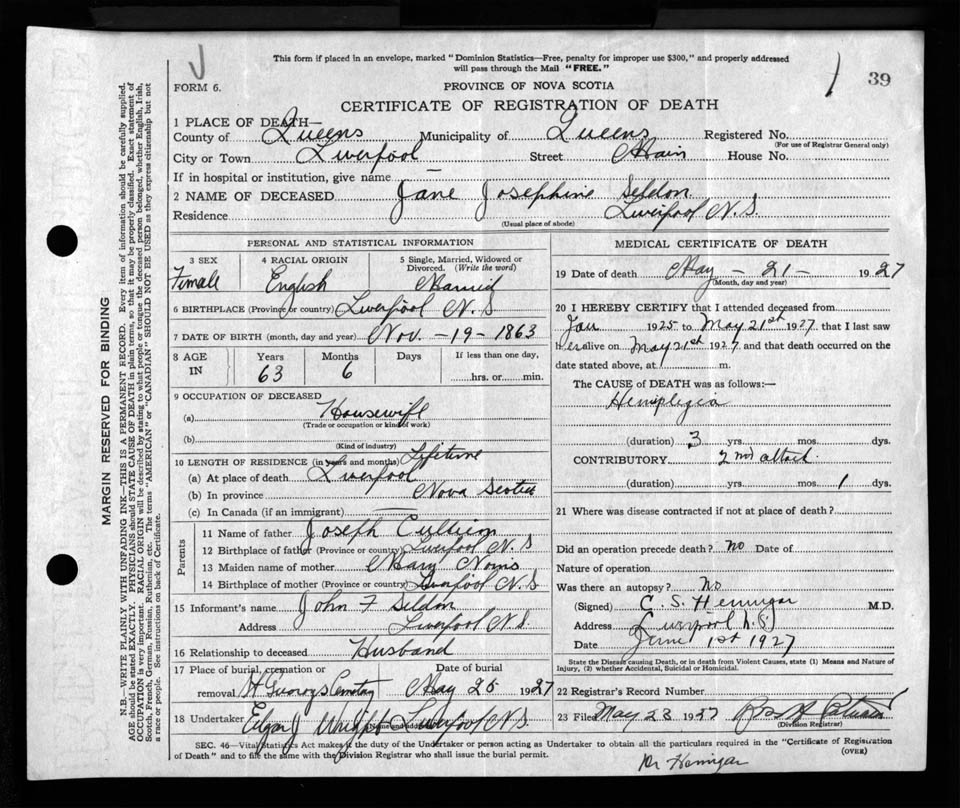 J
This form if placed in an envelope, marked "Dominion Statistics—Free, penalty for improper use $300," and properly addressed
will pass through the Mail "FREE."
39
FORM 6.
PROVINCE OF NOVA SCOTIA
CERTIFICATE OF REGISTRATION OF DEATH
1 PLACE OF DEATH—
County of Queens Municipality of Queens Registered No.
(For use of Registrar General only)
City or Town Liverpool Street Main House No.
If in hospital or institution, give name —
2 NAME OF DECEASED Jane Josephine Seldon
Residence Liverpool N.S.
(Usual place of abode)
PERSONAL AND STATISTICAL INFORMATION
3 SEX 4 RACIAL ORIGIN 5 Single, Married, Widowed or Divorced. (Write the word)
Female English Married
6 BIRTHPLACE (Province or country) Liverpool N.S.
7 DATE OF BIRTH (month, day and year) Nov. - 19 - 1863
8 AGE IN Years Months Days If less than one day,
63 6 hrs. or min.
9 OCCUPATION OF DECEASED
(a) Housewife
(Trade or occupation or kind of work)
(b)
(Kind of industry)
10 LENGTH OF RESIDENCE (in years and months) Lifetime
(a) At place of death Liverpool
(b) In province Nova Scotia
(c) In Canada (if an immigrant)
Parents
11 Name of father Joseph
12 Birthplace of father (Province or country) Liverpool N.S
13 Maiden name of mother Mary
14 Birthplace of mother (Province or country) Liverpool N.S
15 Informant's name John F Seldon
Address Liverpool N.S.
16 Relationship to deceased Husband
17 Place of burial, cremation or removal Cemetary Date of burial May 25 1927
18 Undertaker Liverpool N.S.
(Name and address)
MEDICAL CERTIFICATE OF DEATH
19 Date of death May - 21 - 1927
(Month, day and year)
20 I HEREBY CERTIFY that I attended deceased from
Jan 1925 to May 21st 1927. that I last saw
her alive on May 21st 1927 and that death occurred on the
date stated above, at m.
The CAUSE of DEATH was as follows:—
Hemiplegia
(duration) 3 yrs. mos. dys.
CONTRIBUTORY 2nd attack.
(duration) yrs. mos. 1 dys.
21 Where was disease contracted if not at place of death?
Did an operation precede death? no Date of
Nature of operation
Was there an autopsy? No
(Signed) C. S. Hennigar M.D.
Address Liverpool N.S.
Date June 1st 1927
State the Disease causing Death, or in death from Violent Causes, state (1) Means and Nature of
Injury, (2) whether Accidental, Suicidal or Homicidal.
22 Registrar's Record Number
23 Filed May 23 1927
(Division Registrar)
SEC. 46—Vital Statistics Act makes it the duty of the Undertaker or person acting as Undertaker to obtain all the particulars required in the "Certificate of Registration
of Death" and to file the same with the Division Registrar who shall issue the burial permit.
(OVER)
Dr Hennigar
MARGIN RESERVED FOR BINDING
N.B.—WRITE PLAINLY WITH UNFADING INK—THIS IS A PERMANENT RECORD. Every item of information should be carefully supplied.
AGE should be stated EXACTLY. PHYSICIANS should STATE CAUSE OF DEATH in plain terms, so that it may be properly classified. Exact statement of
OCCUPATION is very important. RACIAL ORIGIN will be described by stating to what people or tongue the deceased person belonged, whether English, Irish,
Scotch, French, German, Russian, Ruthenian, etc. The terms "AMERICAN" or "CANADIAN" SHOULD NOT BE USED as they express citizenship but not
a race or people. See instructions on back of Certificate.